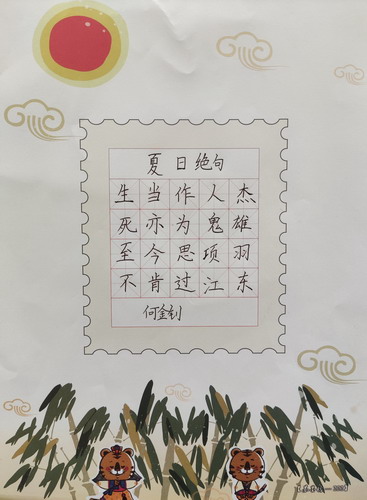 夏日绝句
生当作人杰
死亦为鬼雄
至今思项羽
不肯过江东
何金钊